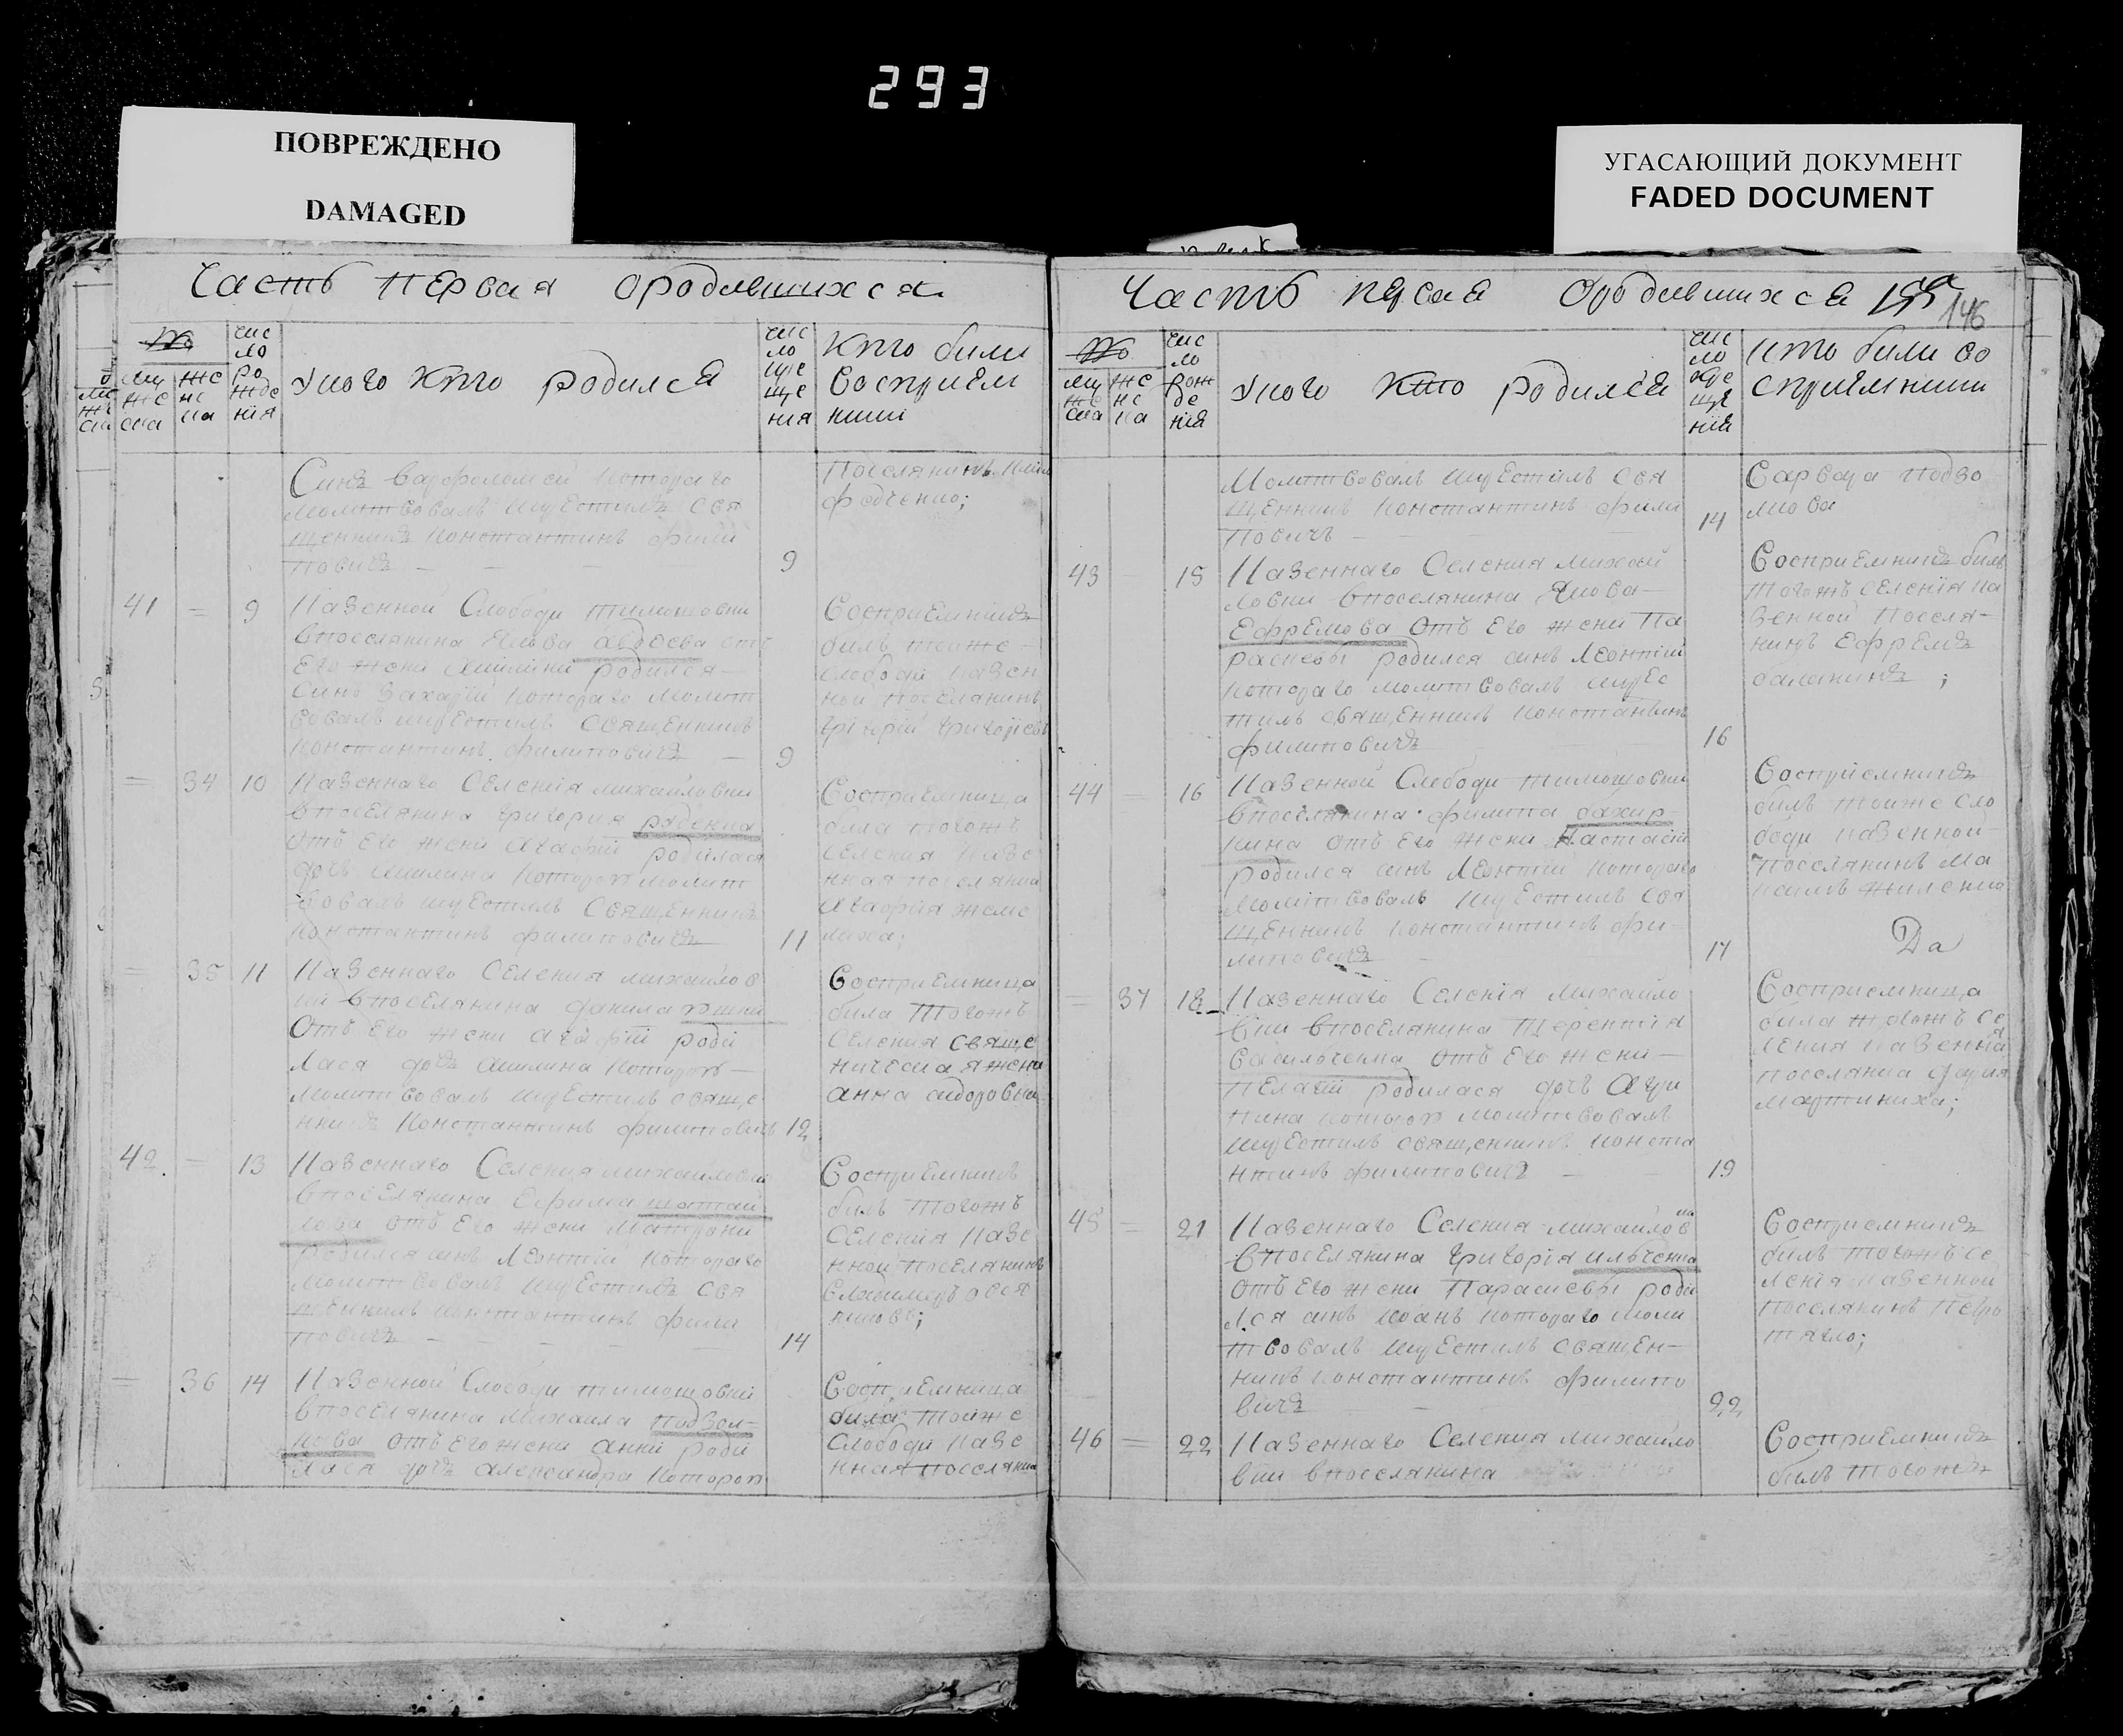 293
ПОВРЕЖДЕНО
DAMAGED
УГАСАЮЩИЙ ДОКУМЕНТ
FADED DOCUMENT
Часть первая ородившихся
№
му
жс
ска
жс
нс
ка
чис
ло
ро
жде
нїя
Укого кто родился
чис
ло
кре
ще
ния
Кто били
восприем
ники
Синъ варфоломей которого
молитвовалъ икрестилъ свя
щенникъ константинъ фили
повичъ
9
поселянинъ
федченко;
41 = 9
Казенной Слободи тимошовки
впоселянина Якова авдѣева отъ
Его жени акилини родился
Синъ Захарїй которого молит
вовалъ икрестилъ Священникъ
константинъ филиповичъ
9
Восприемникъ
билъ тоиже
слободи казен
ной поселянинъ
григорїй григорїевъ
= 34 10
Казенного Селенїя михайловки
впоселянина григория
отъ Его жени агафїи родилася
дочъ акилина которую молит
вовалъ икрестилъ Священникъ
константинъ филиповичъ
11
Восприемница
била тогожъ
селения казе
нная поселянка
агафїя
= 35 11
Казенного Селения михайлов
ки впоселянина данила
Отъ Его жени агафїи роди
лася дочъ акилина которую
молитвовалъ икрестилъ свяще
нникъ константинъ филиповичъ
12
Восприемница
била тогожъ
селения свяще
ническая жена
анна
42 — 13
Казенного Селения михайловки
впоселянина Ефима
отъ Его жени матрони
родился синъ леонтїй которого
молитвовалъ икрестилъ свя
щенникъ константинъ фили
повичъ
14
Восприемникъ
билъ тогожъ
селения казе
нной поселянинъ
= 36 14
Казенной Слободи тимошовки
впоселянина михаила подзол
кова отъ Его жени анни роди
лася дочъ александра которую
Восприемница
била тоиже
слободи казе
нная поселянка
Часть первая Ородившихся
146
№
му
жс
ска
жс
нс
ка
чис
ло
рож
де
нїя
Укого кто родился
чис
ло
кре
ще
нїя
кто били во
сприемники
Молитвовалъ икрестилъ свя
щенникъ константинъ фили
повичъ
14
варвара подзо
лкова
43 — 15
Казенного Селения михай
ловки впоселянина Якова
Ефремова отъ Его жени па
раскевы родился синъ леонтїй
которого молитвовалъ икрес
тилъ священникъ константинъ
филиповичъ
16
Восприемникъ билъ
тогожъ селенїя ка
зенной поселя-
нинъ Ефремъ
балакинъ;
44 — 16
Казенной Слободи тимошовки
впоселянина филипа захар
кина отъ Его жени Настасїи
родился синъ леонтїй которого
молитвовалъ икрестилъ свя
щенникъ константинъ фи-
липовичъ
17
Восприемникъ
билъ тоиже сло
боди казенной
поселянинъ ма
ксимъ
Да
= 37 18
Казенного Селенїя михайло
вки впоселянина терентїя
василченка отъ Его жени
пелагїи родилася дочъ агри
пина которую молитвовалъ
икрестилъ священникъ конста
нтинъ филиповичъ
19
Восприемница
била тогожъ се
ления казенная
поселянка дария
мартиниха;
45 = 21
Казенного Селения михайловки
впоселянина григорїя илченка
отъ Его жени параскевы роди
лся синъ иоанъ которого моли
твовалъ икрестилъ священ-
никъ константинъ филипо
вичъ
22
Восприемникъ
билъ тогожъ се
ленїя казенной
поселянинъ петро
тягло;
46 = 22
Казенного Селения михайло
вки впоселянина
Восприемникъ
билъ тогожъ